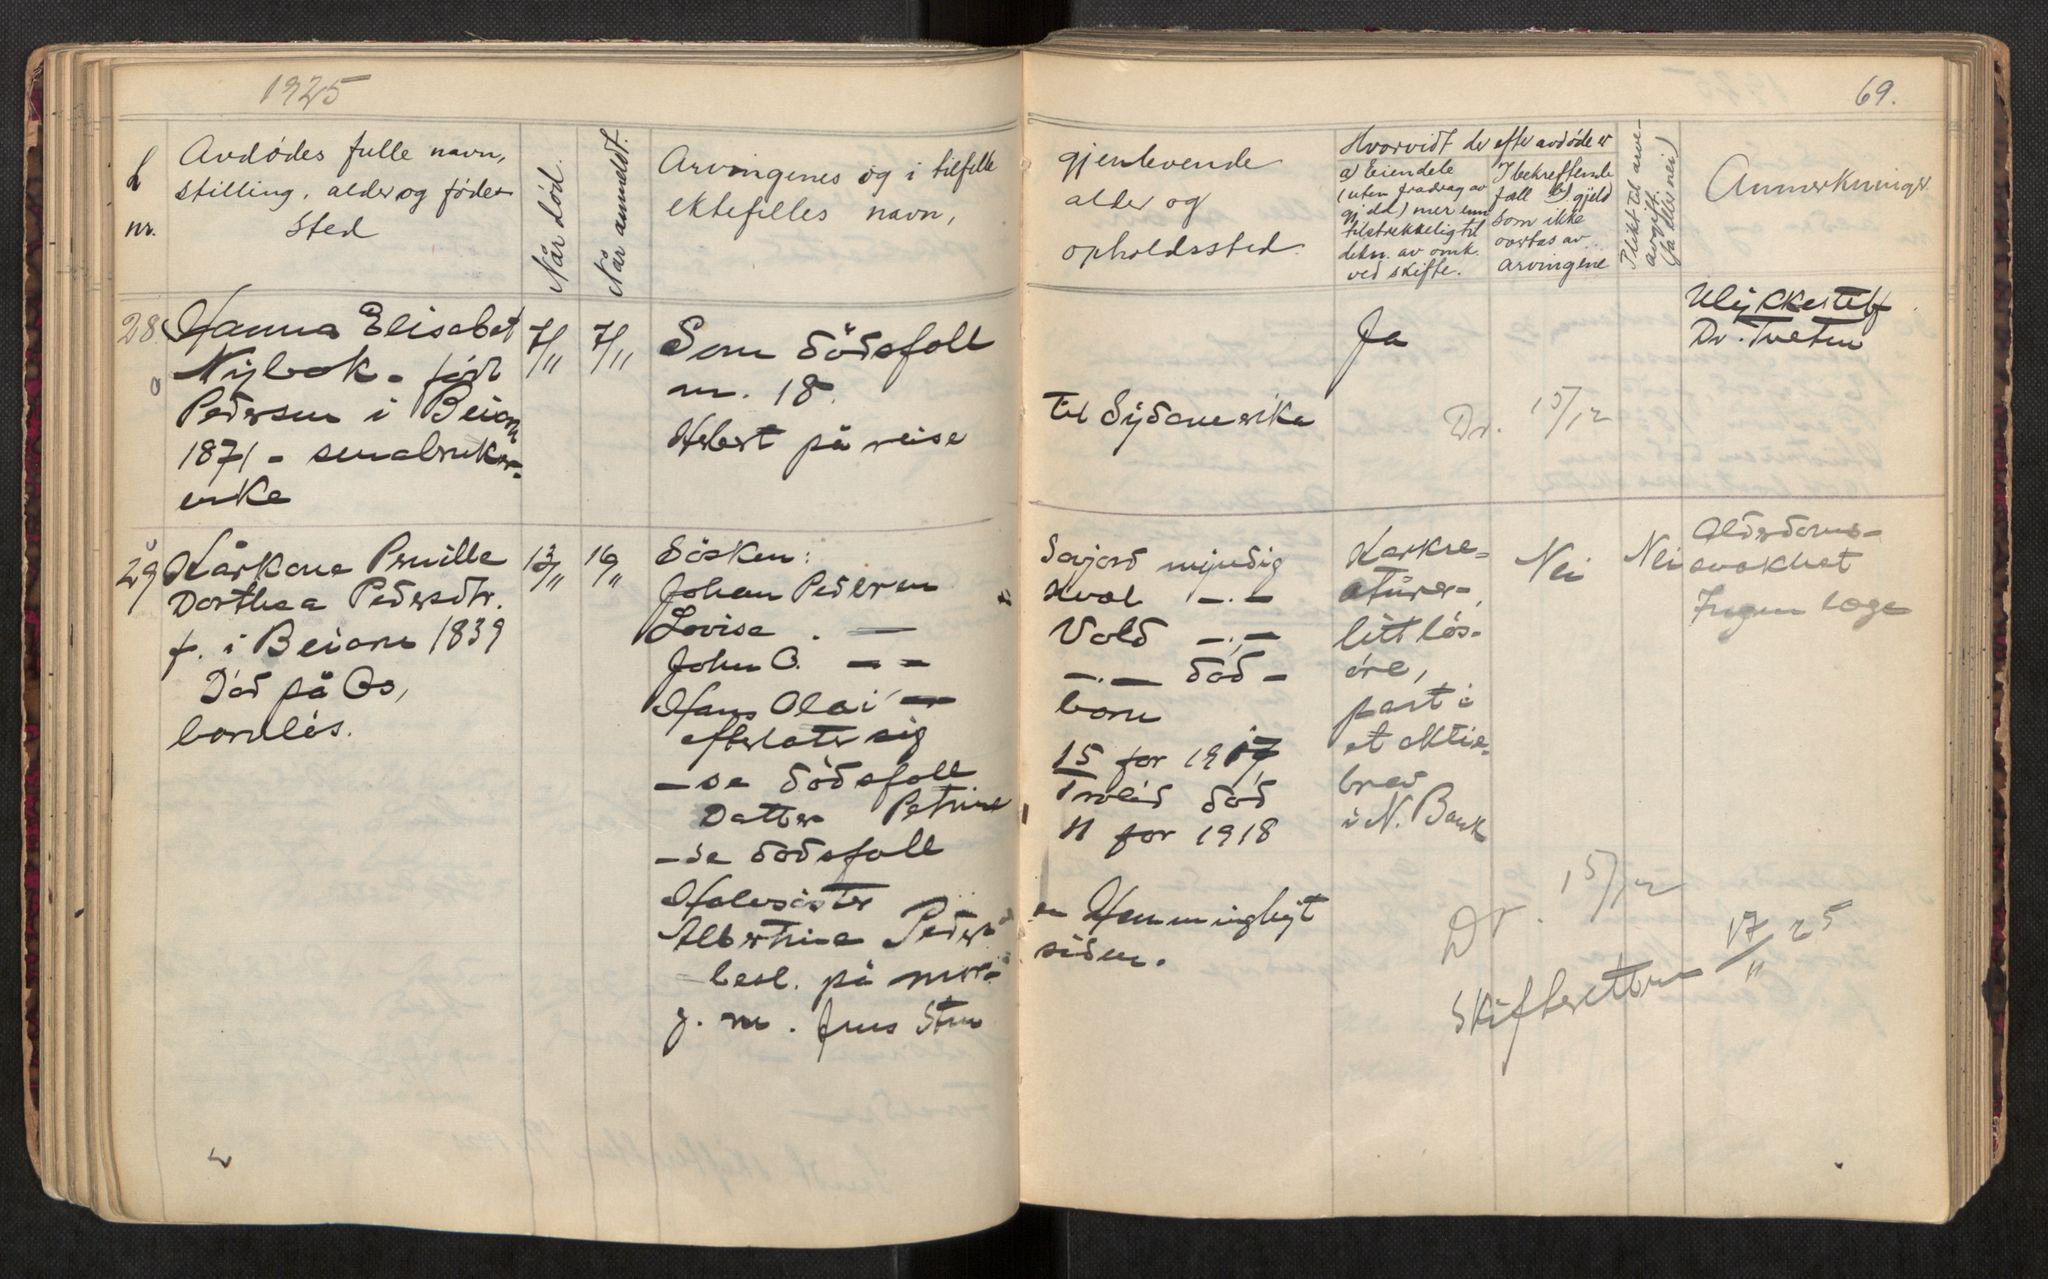 1925
69.
L
nr.
Avdødes fulle navn,
stilling, alder og føde-
sted
Når død.
Når anmeldt.
Arvingenes og i tilfelle
ektefelles navn,
gjenlevende
alder og
opholdssted.
Hvorvidt der efter avdøde er
a) Eiendele
(uten fradrag av
gjeld) mer enn
tilstrekkelig til
dekn. av omk.
ved skifte.
I bekreftende
fall b) gjeld
som ikke
overtas av
arvingene
Plikt til arve-
avgift.
(ja eller nei)
Anmerkninger
28
Hanna Elisabet
Nybak - født
Pedersen i Beiarn
1871 - småbruker-
enke
7/11
7/11
Som dödsfall
nr. 18.
Herbert på reise
til Sydamerika
Ja
Dr. 15/12
Ulykkestilf
Dr. Tveten
29
Kårkone Pernille
Dorthea Pedersdtr.
f. i Beiarn 1839
Död på Os,
barnlös.
13/11
16/11
Sösken:
Johan Pedersen
Lovise. —
John C. — —
Hans Olai —
efterlater sig
— se dödsfall
Datter Petrine
— se dödsfall
Halvsöster
Albertine Peders
besl. på mor-
g. m. Jens Sten
Sörjord myndig
Hval —.—
Vold —.—
—.— död —
barn
15 for 1917
Trolid död
11 for 1918
Hemminghyt
siden.
Karkre-
aturer,
litt lös-
öre,
part i
et aktie-
brev
i N. Bank
Nei
Nei
Alderdoms-
svakhet
Ingen læge
Dr. 15/12
Skifteretten 17/11 25